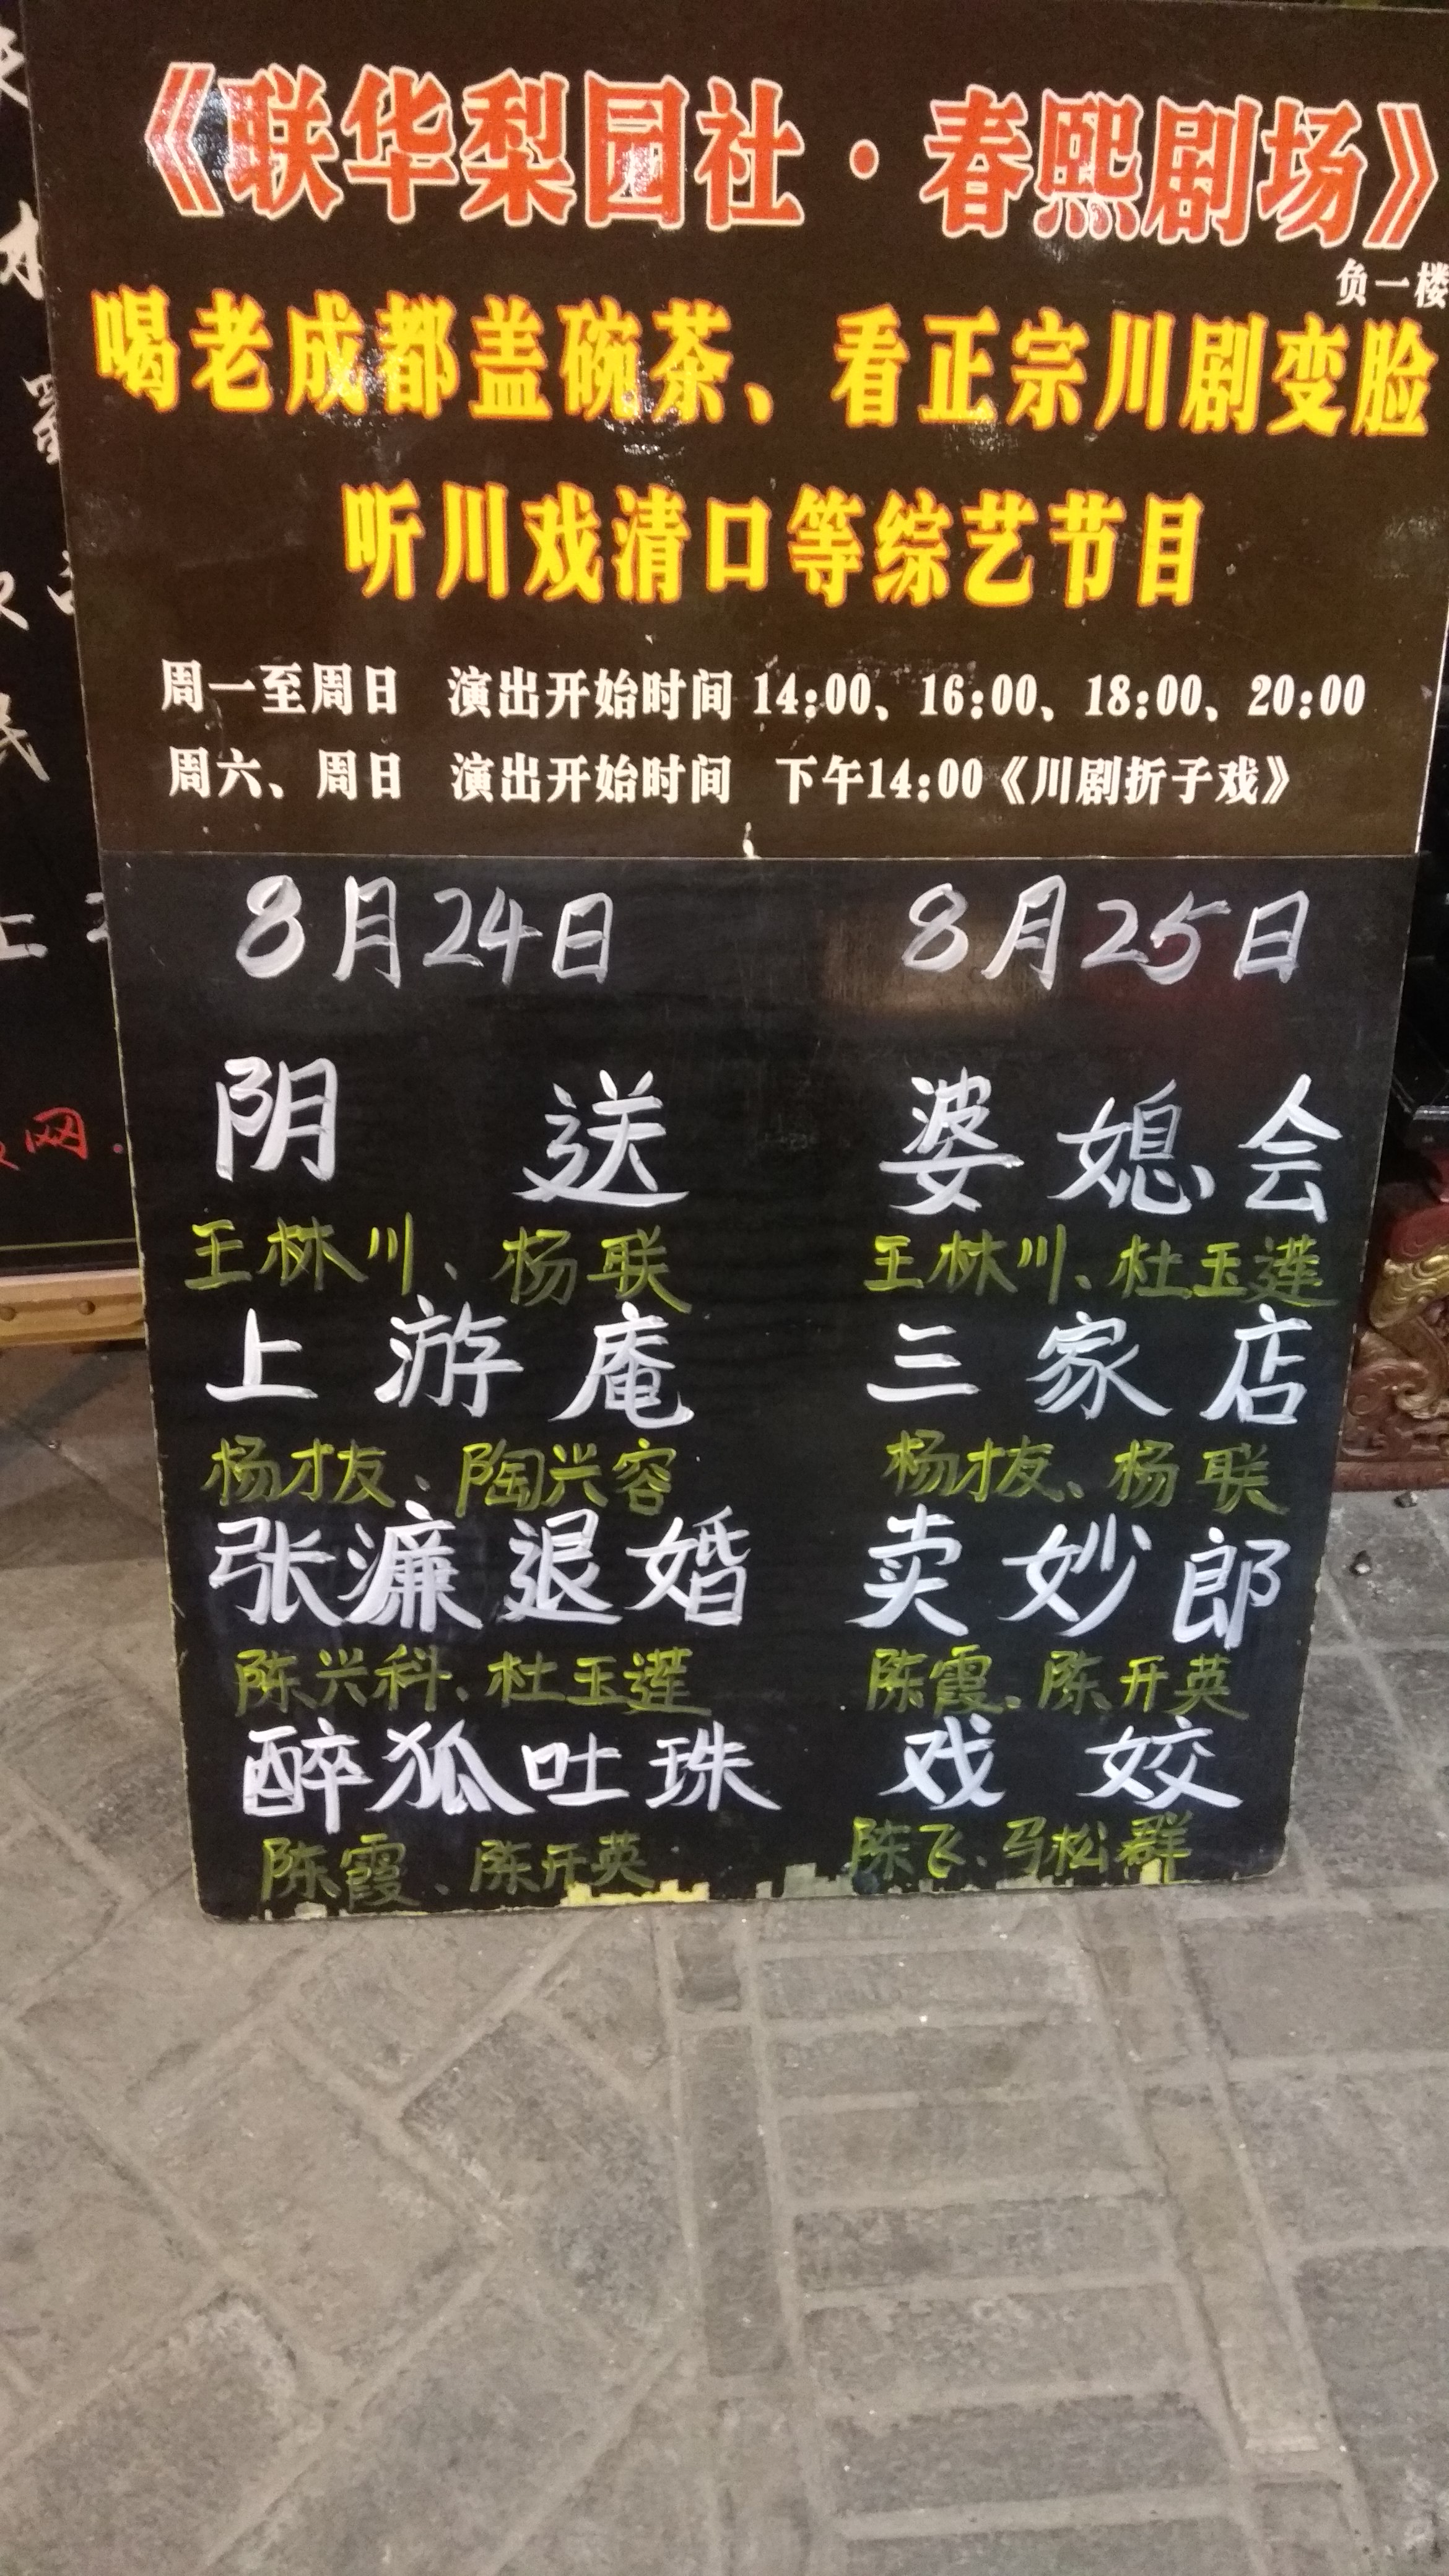 《联华梨园社·春熙剧场》
负一楼
喝老成都盖碗茶、看正宗川剧变脸
听川戏清口等综艺节目
周一至周日 演出开始时间 14:00、16:00、18:00、20:00
周六、周日 演出开始时间 下午14:00《川剧折子戏》
8月24日 8月25日
阴送 婆媳会
王林川、杨联 王林川、杜玉莲
上游庵 三家店
杨才友、陶兴容 杨才友、杨联
张濂退婚 卖妙郎
陈兴科、杜玉莲 陈霞、陈开英
醉狐吐珠 戏姣
陈霞、陈开英 陈飞、马松群
网